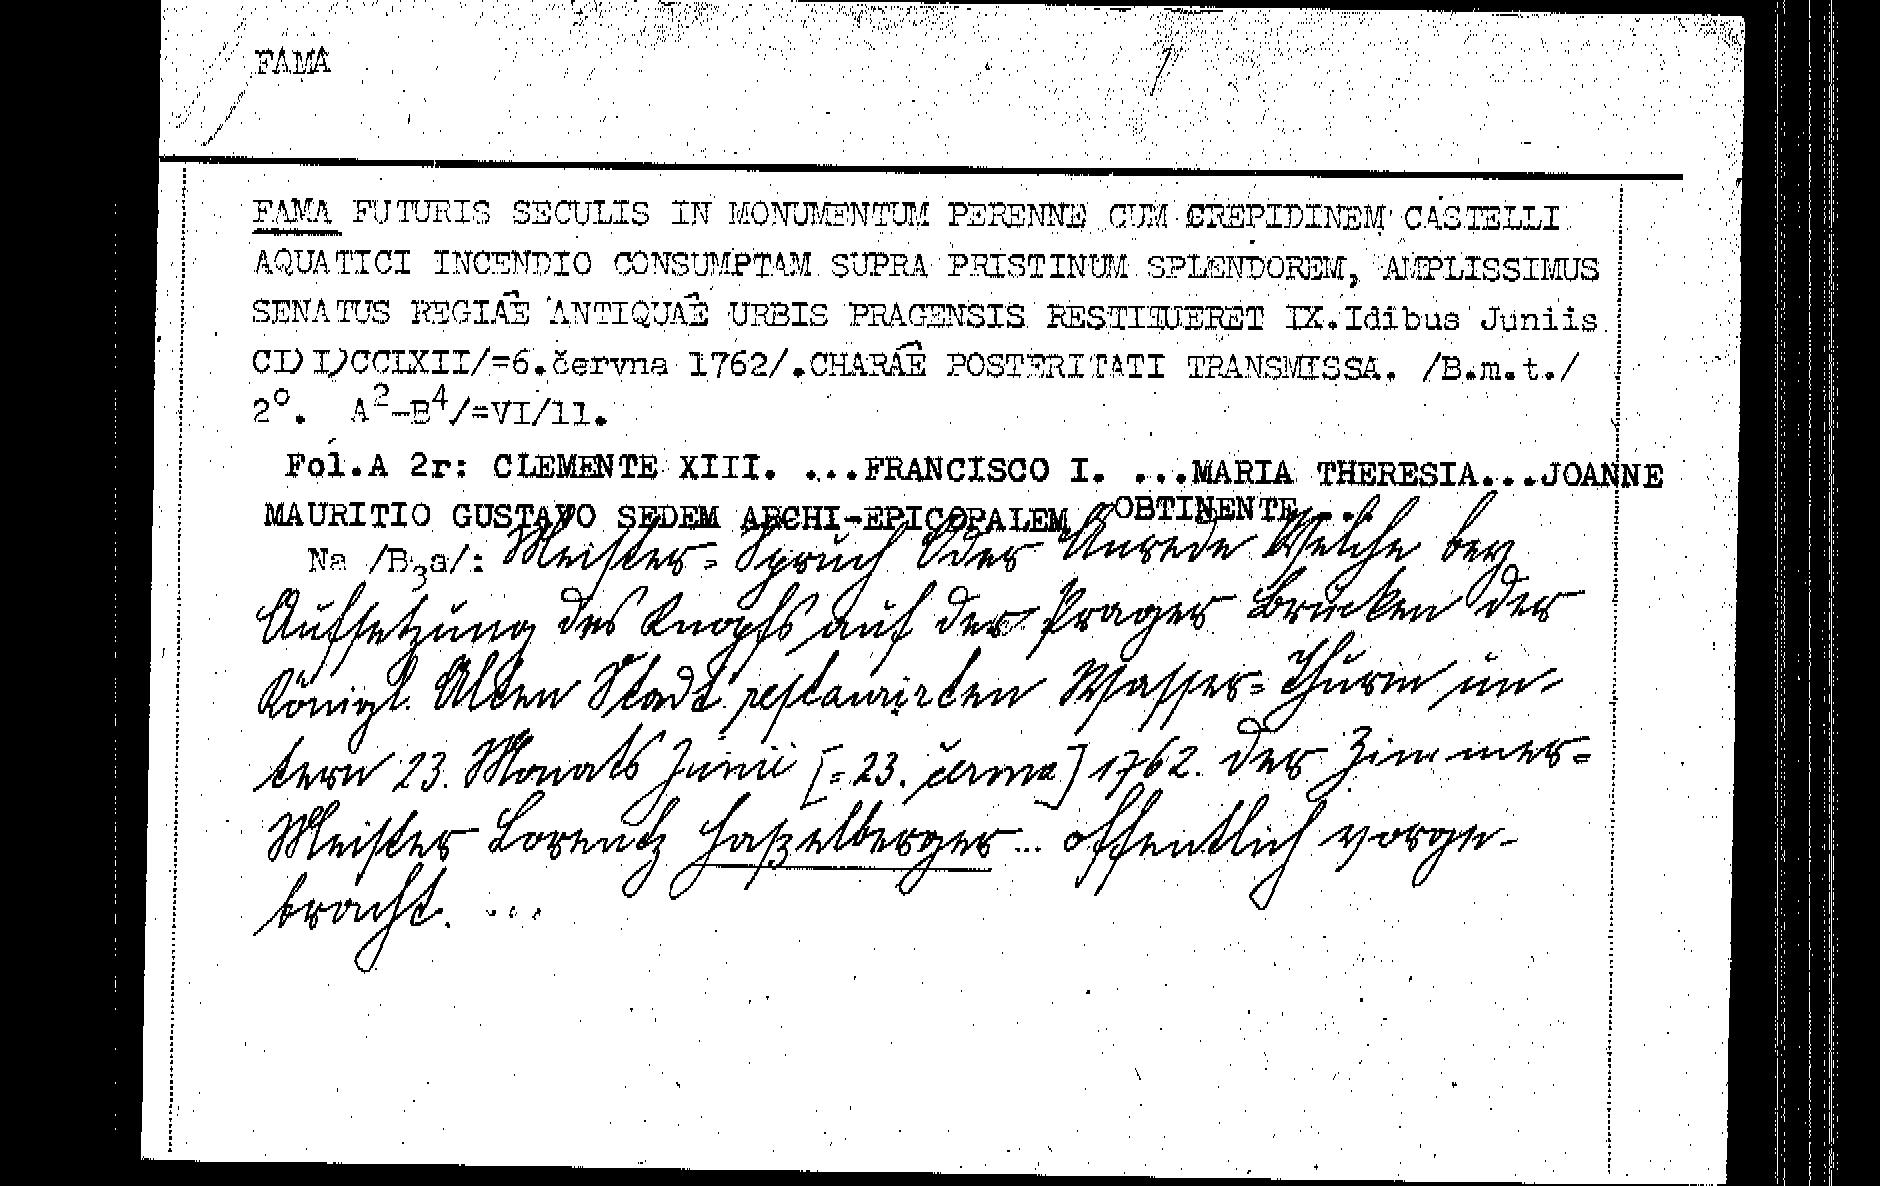 FAMA
FAMA FUTURIS SECULIS IN MONUMENTUM PERENNE CUM CREPIDINEM CASTELLI
AQUATICI INCENDIO CONSUMPTAM SUPRA PRISTINUM SPLENDOREM, AMPLISSIMUS
SENATUS REGIAE ANTIQUAE URBIS PRAGENSIS RESTITUERET IX.Idibus Juniis
CI)I)CCLXII/=6.června 1762/.CHARAE POSTERITATI TRANSMISSA. /B.m.t./
2°. A²-B⁴/=VI/11.
Fol.A 2r: CLEMENTE XIII. ...FRANCISCO I. ...MARIA THERESIA...JOANNE
MAURITIO GUSTAVO SEDEM ARCHI-EPICOPALEM OBTINENTE...
Na /B₃a/: Meister= Spruch Oder Anrede Welche bey
Aufsetzung des Knopfs auf der Prager Brucken der
Königl. Alten Stadt restaurirten Wasser=Thurm un-
tern 23. Monats Junii [=23. června] 1762. der Zimmer=
Meister Lorentz Haßelberger... offentlich vorge-
bracht. ...